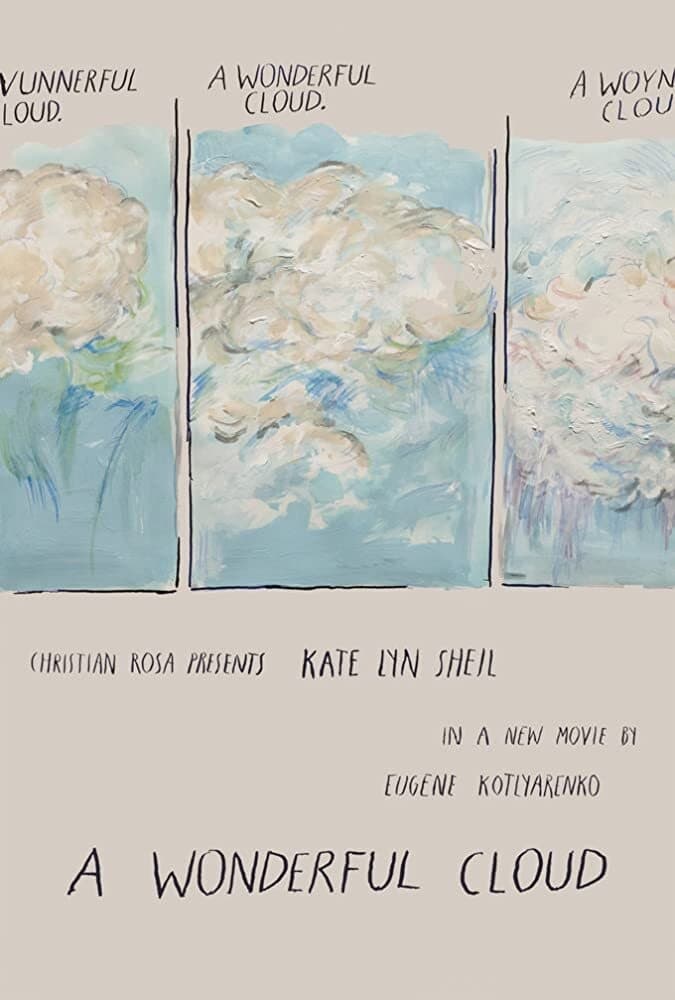 VUNNERFUL
LOUD.
A WONDERFUL
CLOUD.
A WOYN
CLOU
CHRISTIAN ROSA PRESENTS KATE LYN SHEIL
IN A NEW MOVIE BY
EUGENE KOTLYARENKO
A WONDERFUL CLOUD